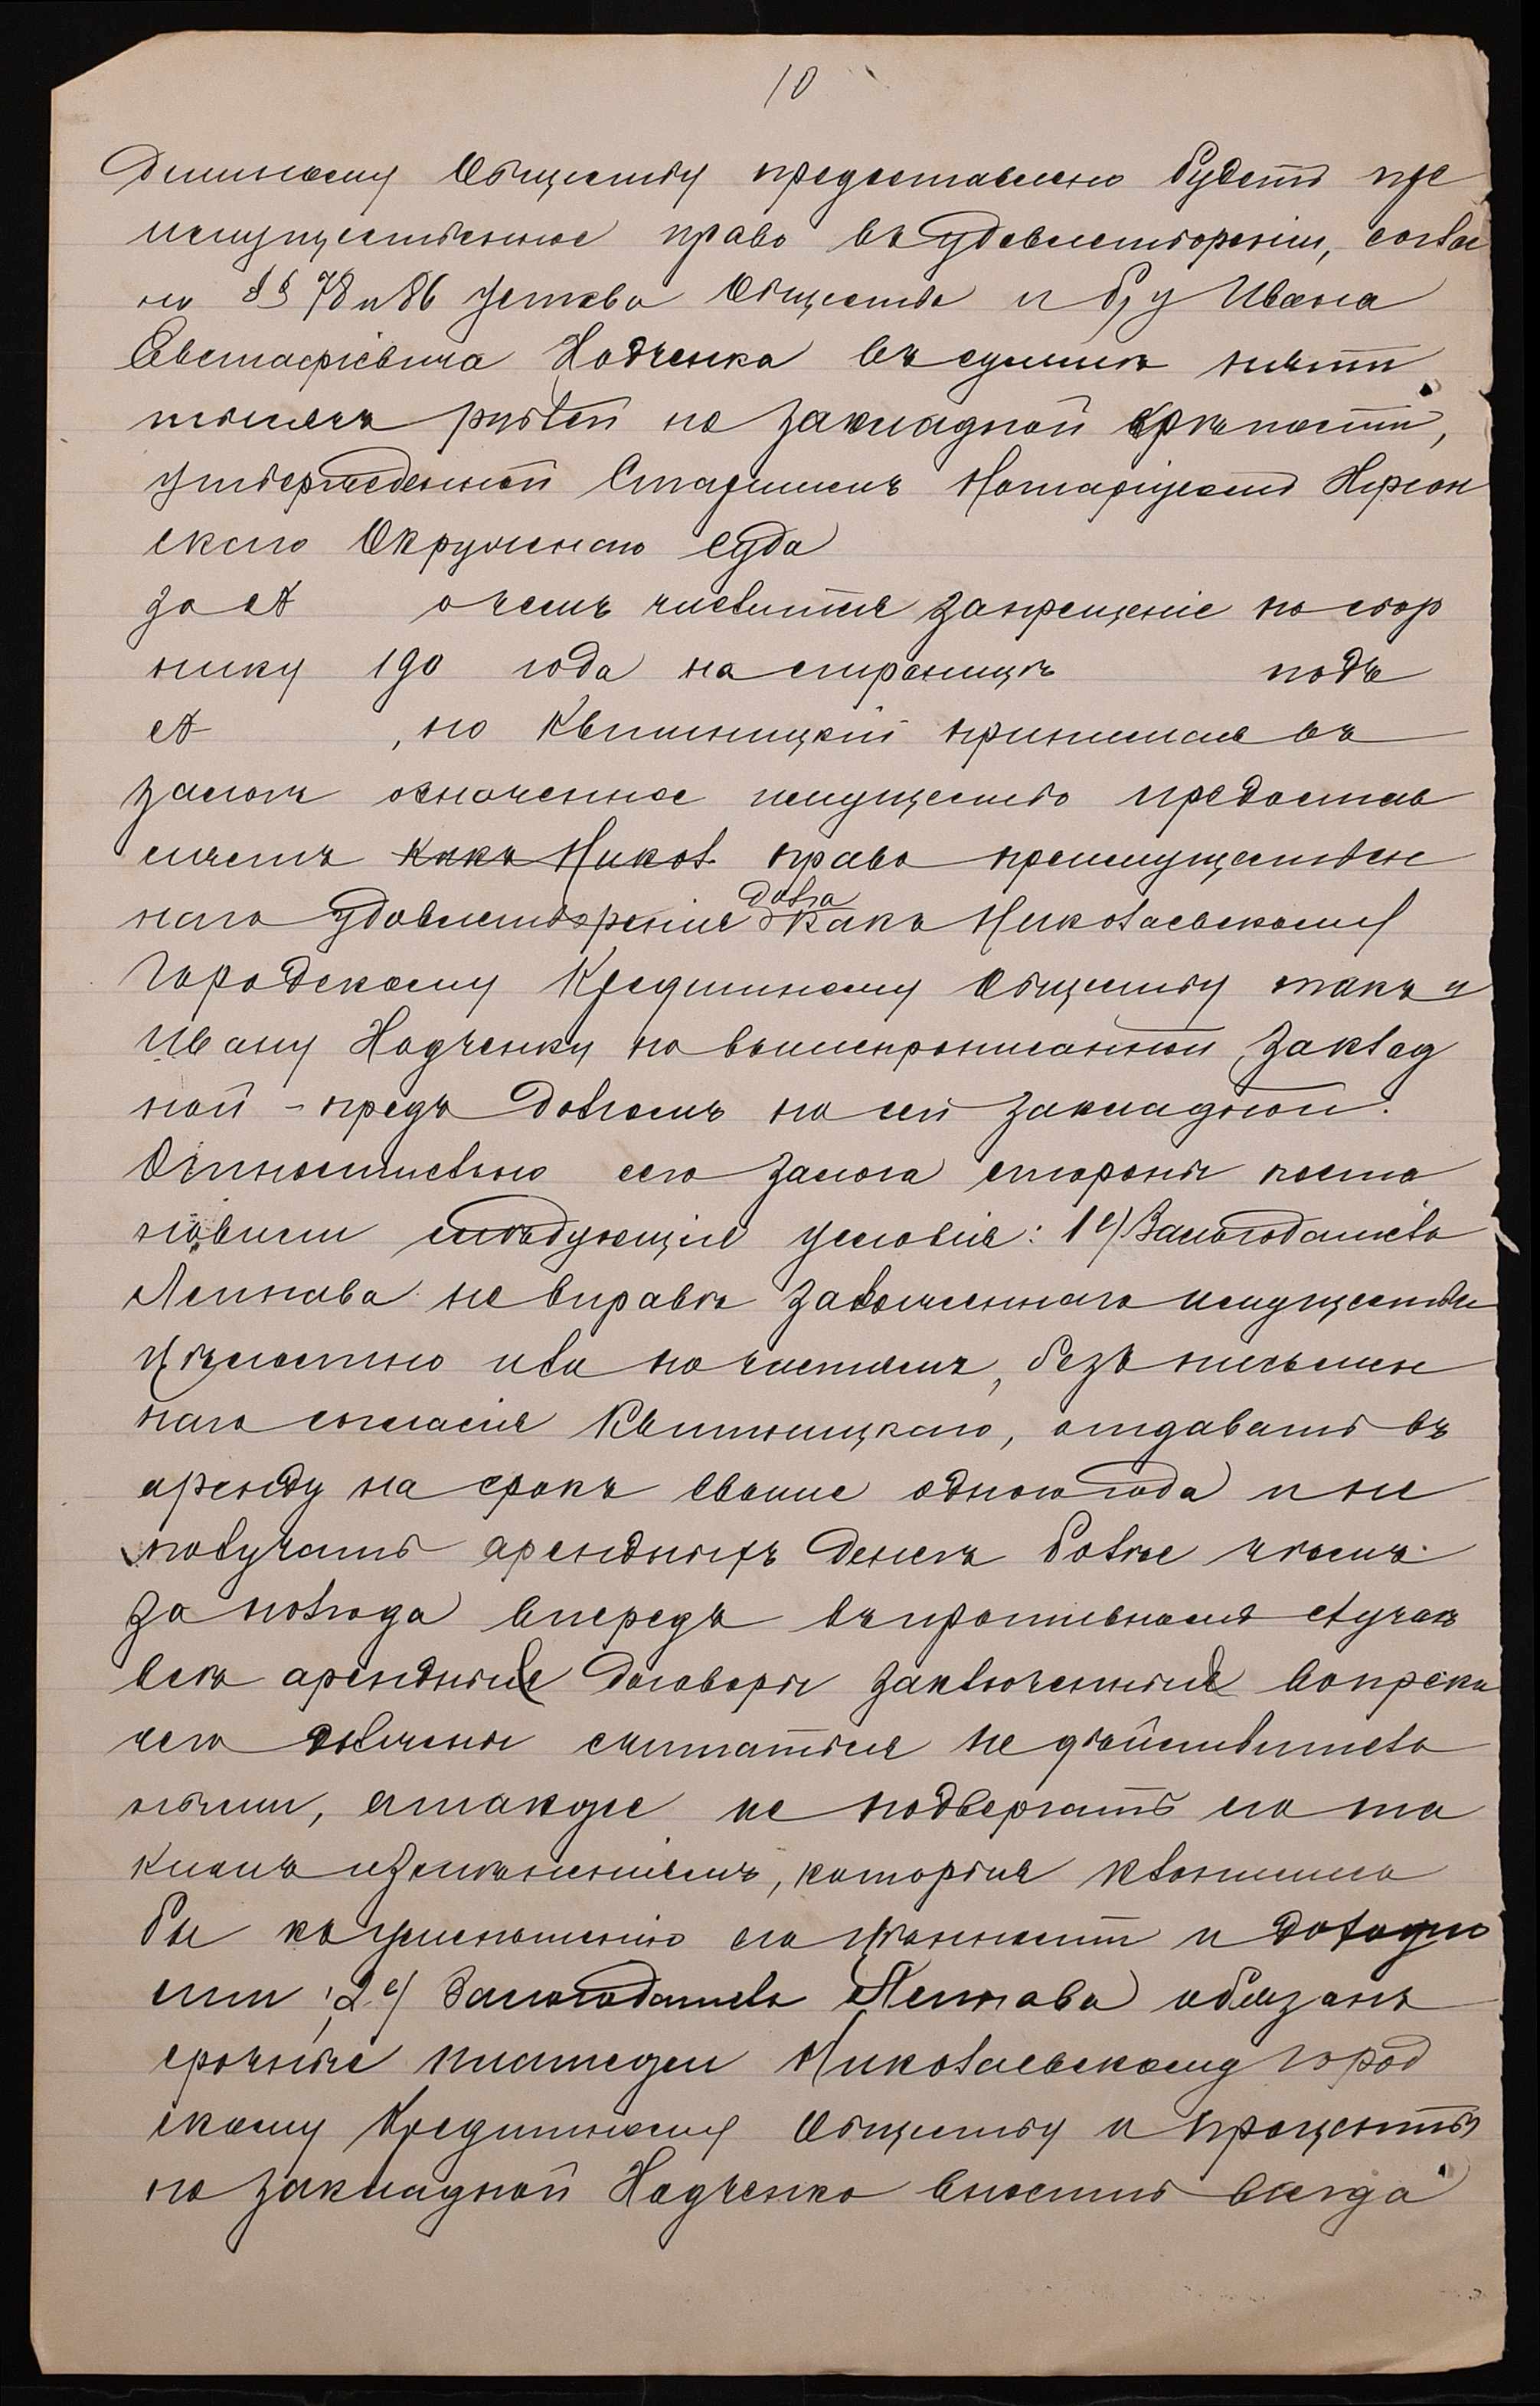 10
дитному Обществу предоставлено будетъ пре
имущественное право въ удовлетвореніи, соглас
но §§ 78 и 86 устава Общества и б, у Ивана
Евстафіевича Надченка въ суммѣ пяти
тысячъ рублей по закладной крѣпости,
утвержденной Старшимъ Нотаріусомъ Херсон
скаго Окружнаго Суда
за №  о чемъ числится запрещеніе по сбор
нику 190  года на страницѣ  подъ
№  , но Квитницкій принимая въ
залогъ означенное имущество предостав
ляетъ какъ Никол. право преимуществен
наго удовлетворенія долга какъ Николаевскому
Городскому Кредитному Обществу такъ и
Ивану Надченку по вышепрописанной заклад
ной - предъ долгомъ по сей закладной.
Относительно сего залога стороны поста
новили слѣдующія условія: 1е) Залогодатель
не вправѣ заложеннаго имущества
цѣлостью или по частямъ, безъ письмен
наго согласія Квитницкаго, отдавать въ
аренду на срокъ свыше одного года и не
получать арендныхъ денегъ болѣе чѣмъ
за полгода впередъ въ противномъ случаѣ
всѣ арендные договоры заключенные вопреки
чего должны считаться не дѣйствитель
ными, а также не подвергать его та
кимъ измѣненіямъ, которыя клонились
бы къ уменьшенію его цѣнности и доходно
сти; 2е) Залогодатель обязанъ
срочные платежи Николаевскому Город
скому Кредитному Обществу и проценты
по закладной Надченко вносить всегда